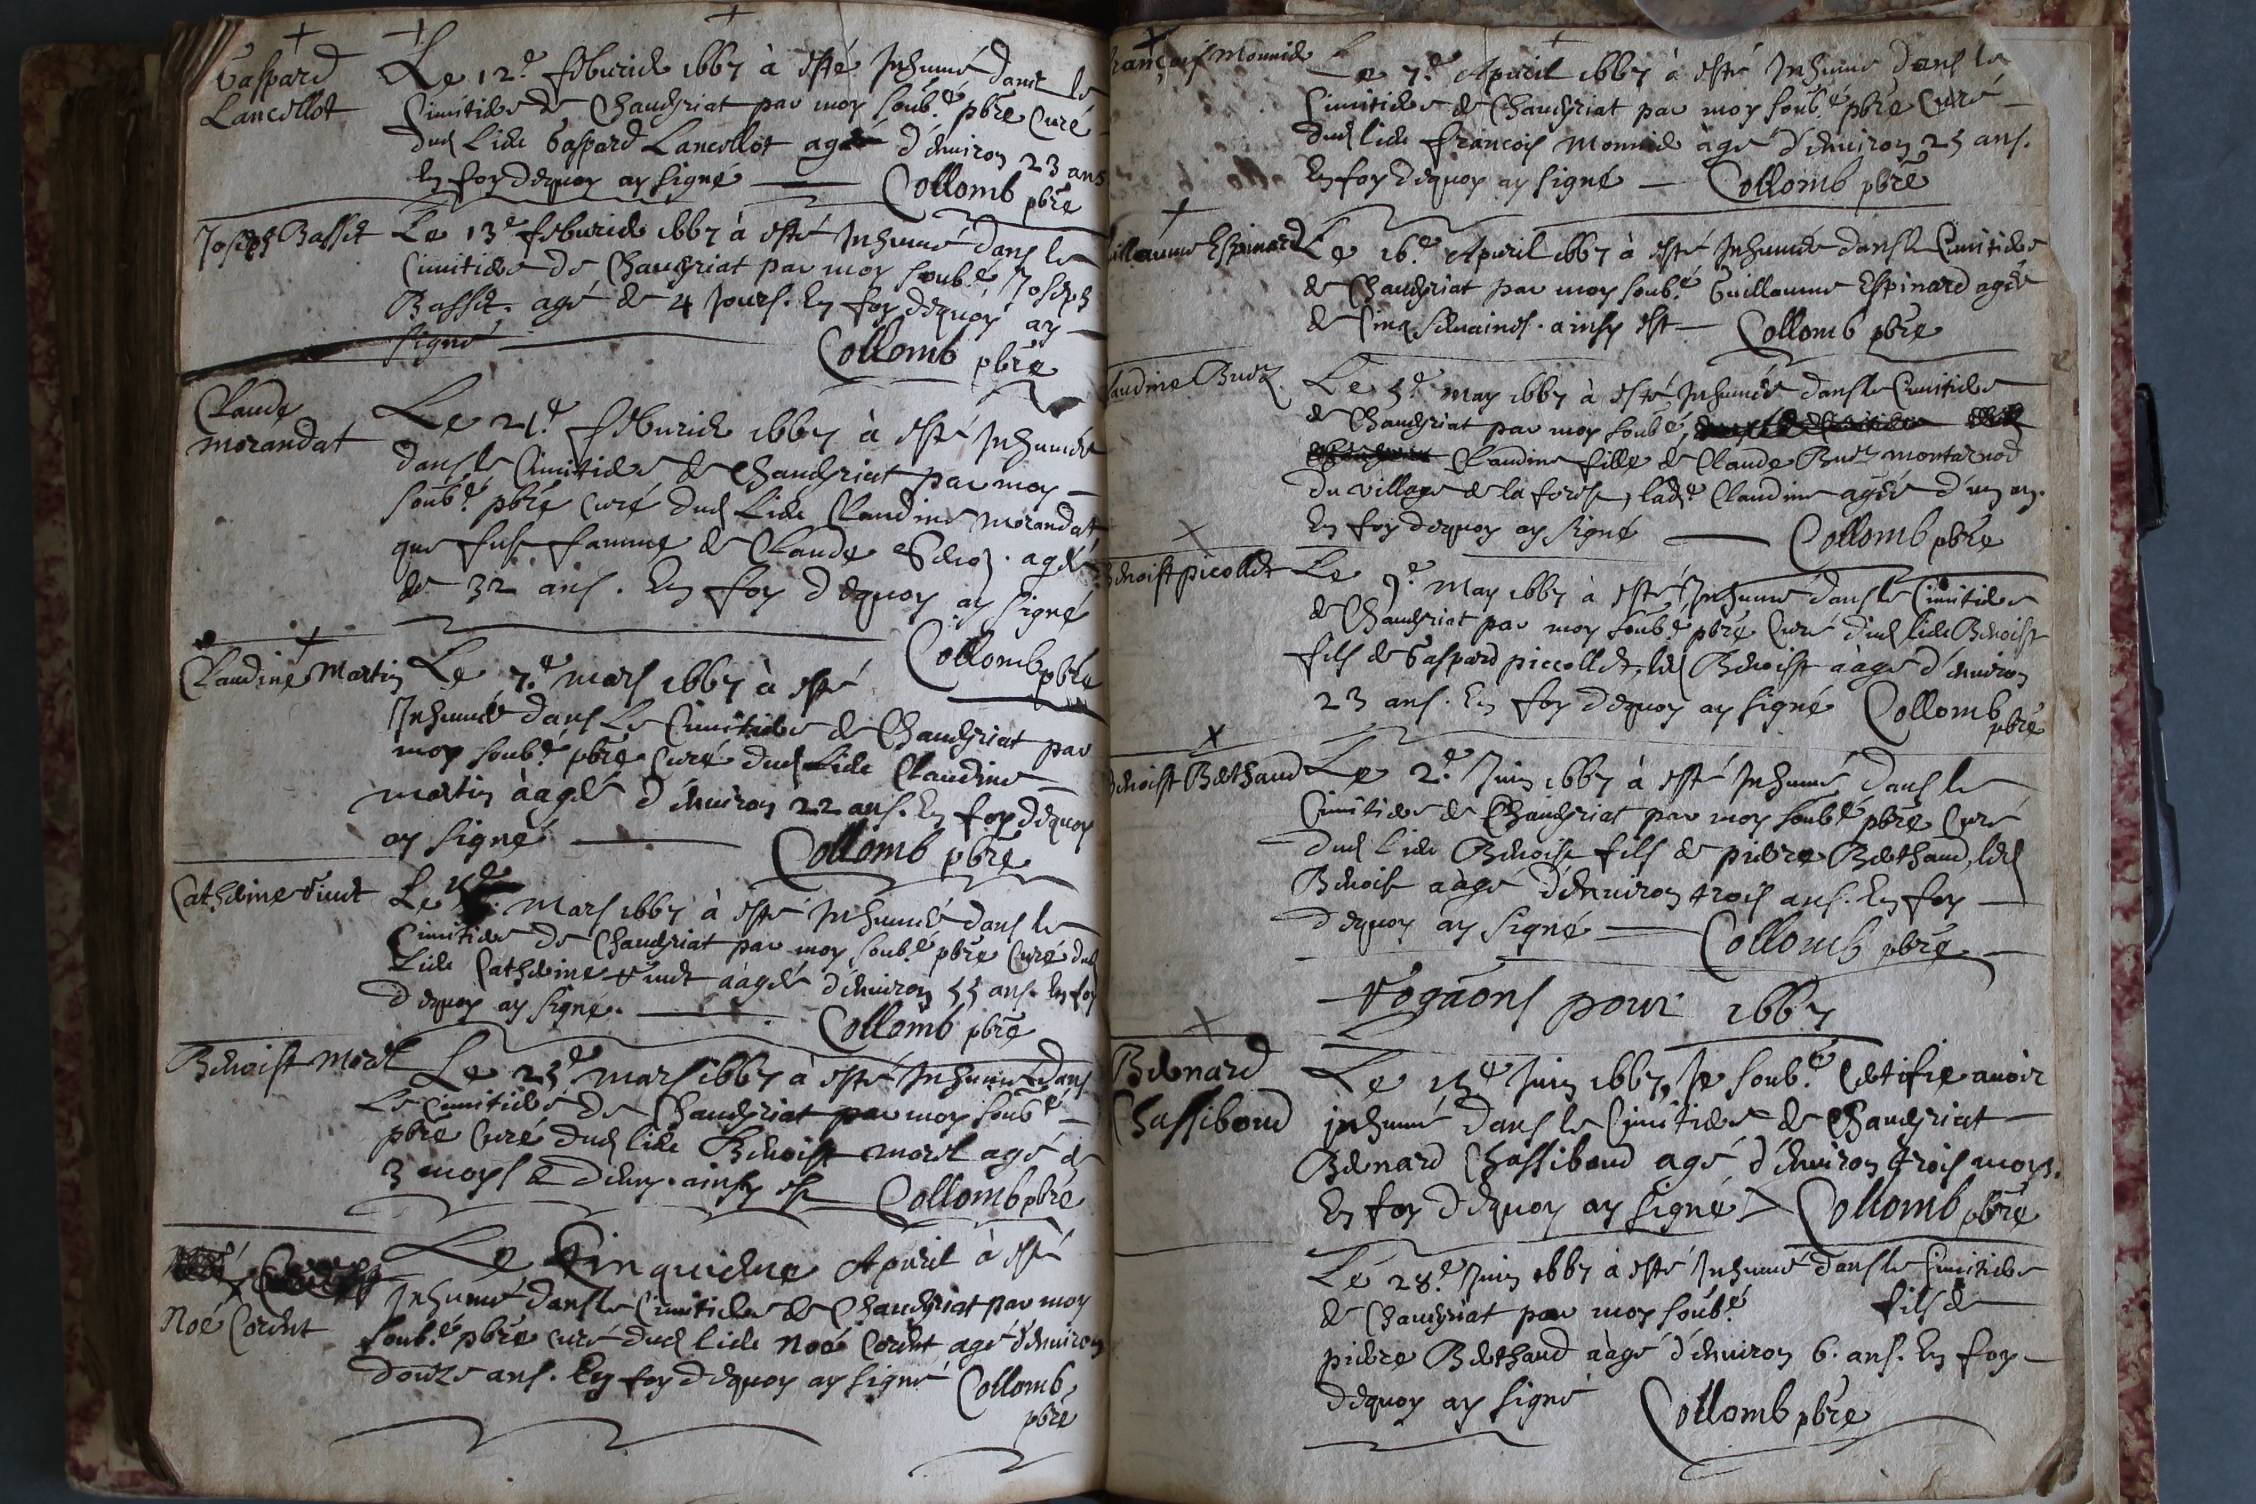 Gaspard
Lancellot
Le 12.e feburier 1667 à esté Inhumé dans le
Cimitiere de Chaveyriat par moy soub.é pbre Curé
dud lieu Gaspard Lancellot agé d'environ 23 ans
En foy dequoy ay signé Collomb pbre
Joseph Basset
Le 13.e feburier 1667 à esté Inhumé dans le
Cimitiere de Chaveyriat par moy soub.é Joseph
Basset. agé de 4 Jours. En foy dequoy ay
signé Collomb pbre
Claude
morandat
Le 21.e feburier 1667 à esté Inhumée
dans le Cimitiere de Chaveyriat par moy
soub.é pbre Curé dud Lieu Claudine morandat
que fust famme de Claude . agée
de 32 ans. En foy dequoy ay signé
Collomb pbre
Claudine Martin
Le 7.e mars 1667 à esté
Inhumée dans Le Cimitiere de Chaveyriat par
moy soub.é pbre Curé dud Lieu Claudine
martin àagée d'environ 22 ans. En foy dequoy
ay signé Collomb pbre
Catherine
Le mars 1667 à esté Inhumée dans le
Cimitiere de Chaveyriat par moy soub.é pbre Curé dud
Lieu Catherine àagée d'environ 55 ans. En foy
dequoy ay signé. Collomb pbre
Benoist Morel
Le 25.e mars 1667 à esté Inhumé dans
Le Cimitiere de Chaveyriat par moy soub.é
pbre Curé dud lieu Benoist morel agé de
3 moys & demy. ainsy est Collomb pbre
Noé Cordet
Le Cinquieme Apuril à esté
Inhumé dans le Cimitiere de Chaveyriat par moy
soub.é pbre curé dud lieu Noé Cordet agé d'environ
douze ans. En foy dequoy ay signé Collomb
pbre
françois Monnier
Le 7.e Apuril 1667 à esté Inhumé dans le
Cimitiere de Chaveyriat par moy soub.é pbre Curé
dud lieu francois Monnier àgé d'environ 25 ans.
En foy dequoy ay signé Collomb pbre
uillaume Espinard
Le 16.e Apuril 1667 à esté Inhumée dans le Cimitiere
de Chaveyriat par moy soub.é Guillaume Espinard agée
de Cinq semaines. ainsy est Collomb pbre
laudine Buez
Le 5.e may 1667 à esté Inhumée dans le Cimitiere
de Chaveyriat par moy soub.é,
Claudine fille de Claude Buez montarnod
du village de la forest, lad.e Claudine agée d'un an.
En foy dequoy ay signé Collomb pbre
Benoist picollet
Le 9.e May 1667 à esté Inhumé dans le Cimitiere
de Chaveyriat par moy soub.é pbre Curé dud lieu Benoist
fils de Gaspard piccollet, led Benoist àagé d'environ
23 ans. En foy dequoy ay signé Collomb
pbre
Benoist Berthaud
Le 2.e Juin 1667 à esté Inhumé dans le
Cimitiere de Chaveyriat par moy soub.é pbre Curé
dud lieu Benoist fils de pierre Berthaud, led
Benoist aàgé d'environ trois ans. En foy
dequoy ay signé Collomb pbre
Rogaons pour 1667
Bernard
Chassiboud
Le 15.e Juin 1667, Je soub.é Certifie avoir
inhumé dans le Cimitiere de Chaveyriat
Bernard Chassiboud agé d'environ trois moys.
En foy dequoy ay signé Collomb pbre
Le 28.e Juin 1667 à esté Inhumé dans le Cimitiere
de Chaveyriat par moy soub.é fils de
pierre Berthaud aàgé d'environ 6. ans. En foy
dequoy ay signé Collomb pbre